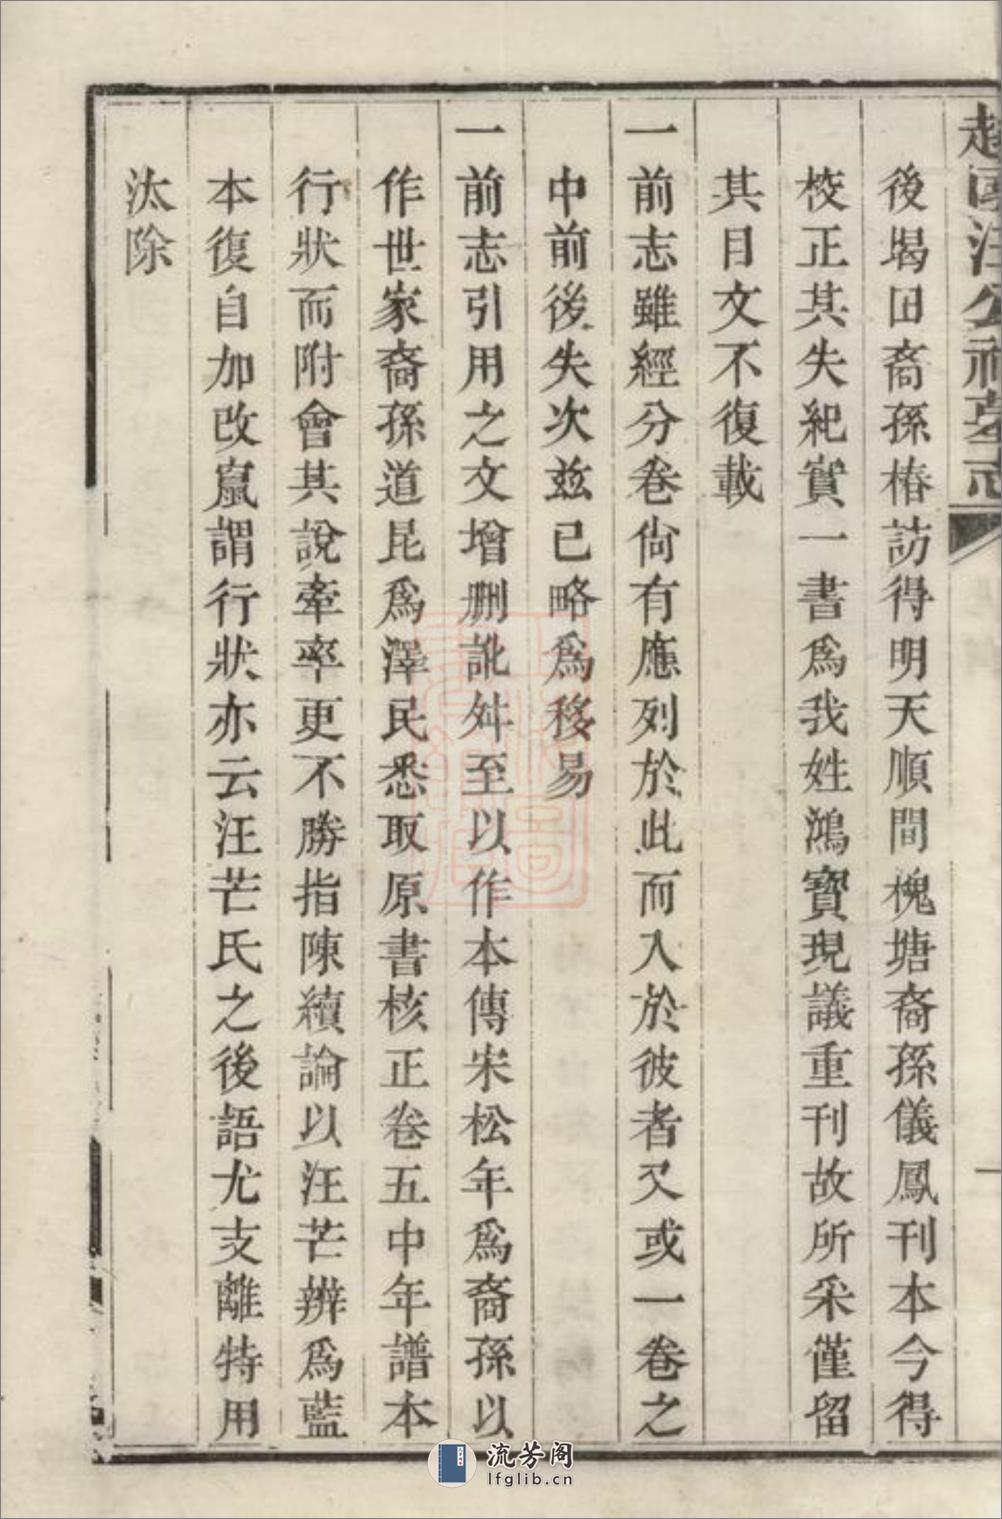 越國汪公祠墓志
後堨田裔孫椿訪得明天順間槐塘裔孫儀鳳刊本今得
校正其失紀實一書爲我姓鴻寶現議重刊故所采僅留
其目文不復載
一前志雖經分卷尙有應列於此而入於彼者又或一卷之
中前後失次兹已略爲移易
一前志引用之文增删訛舛至以作本傳宋松年爲裔孫以
作世家裔孫道昆爲澤民悉取原書核正卷五中年譜本
行狀而附會其說牽率更不勝指陳續論以汪芒辨爲藍
本復自加改竄謂行狀亦云汪芒氏之後語尤支離特用
汰除
流芳阁
lfglib.cn